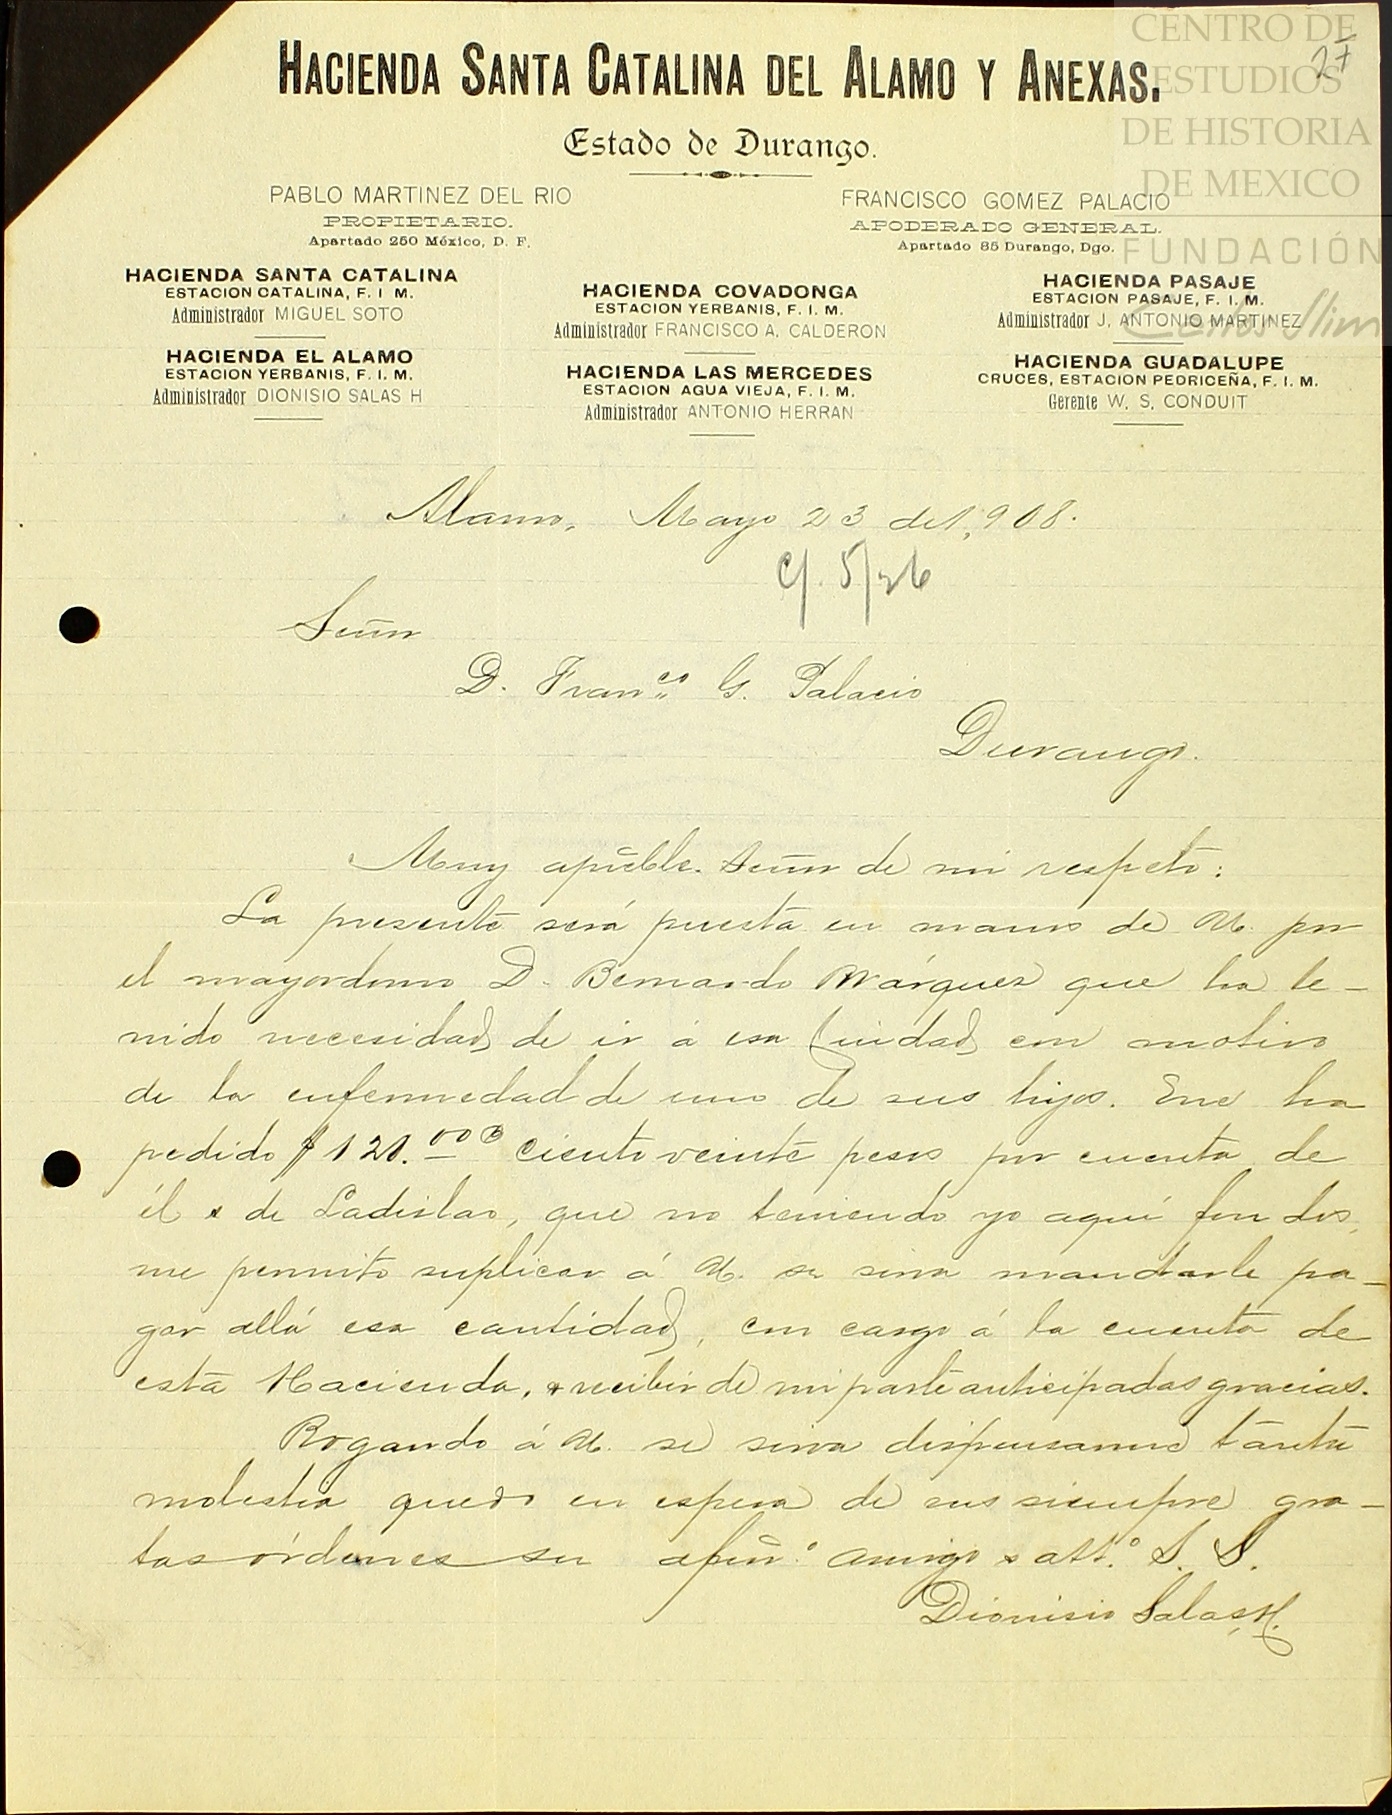 CENTRO DE
ESTUDIOS
DE HISTORIA
DE MEXICO
FUNDACIÓN
Carlos Slim
27
HACIENDA SANTA CATALINA DEL ALAMO Y ANEXAS.
Estado de Durango.
PABLO MARTINEZ DEL RIO
PROPIETARIO.
Apartado 250 México, D. F.
FRANCISCO GOMEZ PALACIO
APODERADO GENERAL.
Apartado 85 Durango, Dgo.
HACIENDA SANTA CATALINA
ESTACION CATALINA, F. I M.
Administrador MIGUEL SOTO
HACIENDA EL ALAMO
ESTACION YERBANIS, F. I. M.
Administrador DIONISIO SALAS H
HACIENDA COVADONGA
ESTACION YERBANIS, F. I. M.
Administrador FRANCISCO A. CALDERON
HACIENDA LAS MERCEDES
ESTACION AGUA VIEJA, F. I. M.
Administrador ANTONIO HERRAN
HACIENDA PASAJE
ESTACION PASAJE, F. I. M.
Administrador J. ANTONIO MARTINEZ
HACIENDA GUADALUPE
CRUCES, ESTACION PEDRICEÑA, F. I. M.
Gerente W. S. CONDUIT
Alamo, Mayo 23 de 1,908.
C/. 5/26
Señor
D. Franco G. Palacio
Durango.
Muy apreble. Señor de mi respeto:
La presente será puesta en manos de U. por
el mayordomo D. Bernardo Márquez que ha te-
nido necesidad de ir á esa Ciudad con motivo
de la enfermedad de uno de sus hijos. Ene ha
pedido $ 120.00 ciento veinte pesos por cuenta de
él y de Ladislao, que no teniendo yo aquí fondos,
me permito suplicar á U. se sirva mandarle pa-
gar allá esa cantidad, con cargo á la cuenta de
esta Hacienda, y recibir de mi parte anticipadas gracias.
Rogando á U. se sirva dispensarme tanta
molestia quedo en espera de sus siempre gra-
tas órdenes su afmo. amigo y atto. S. S.
Dionisio Salas H.